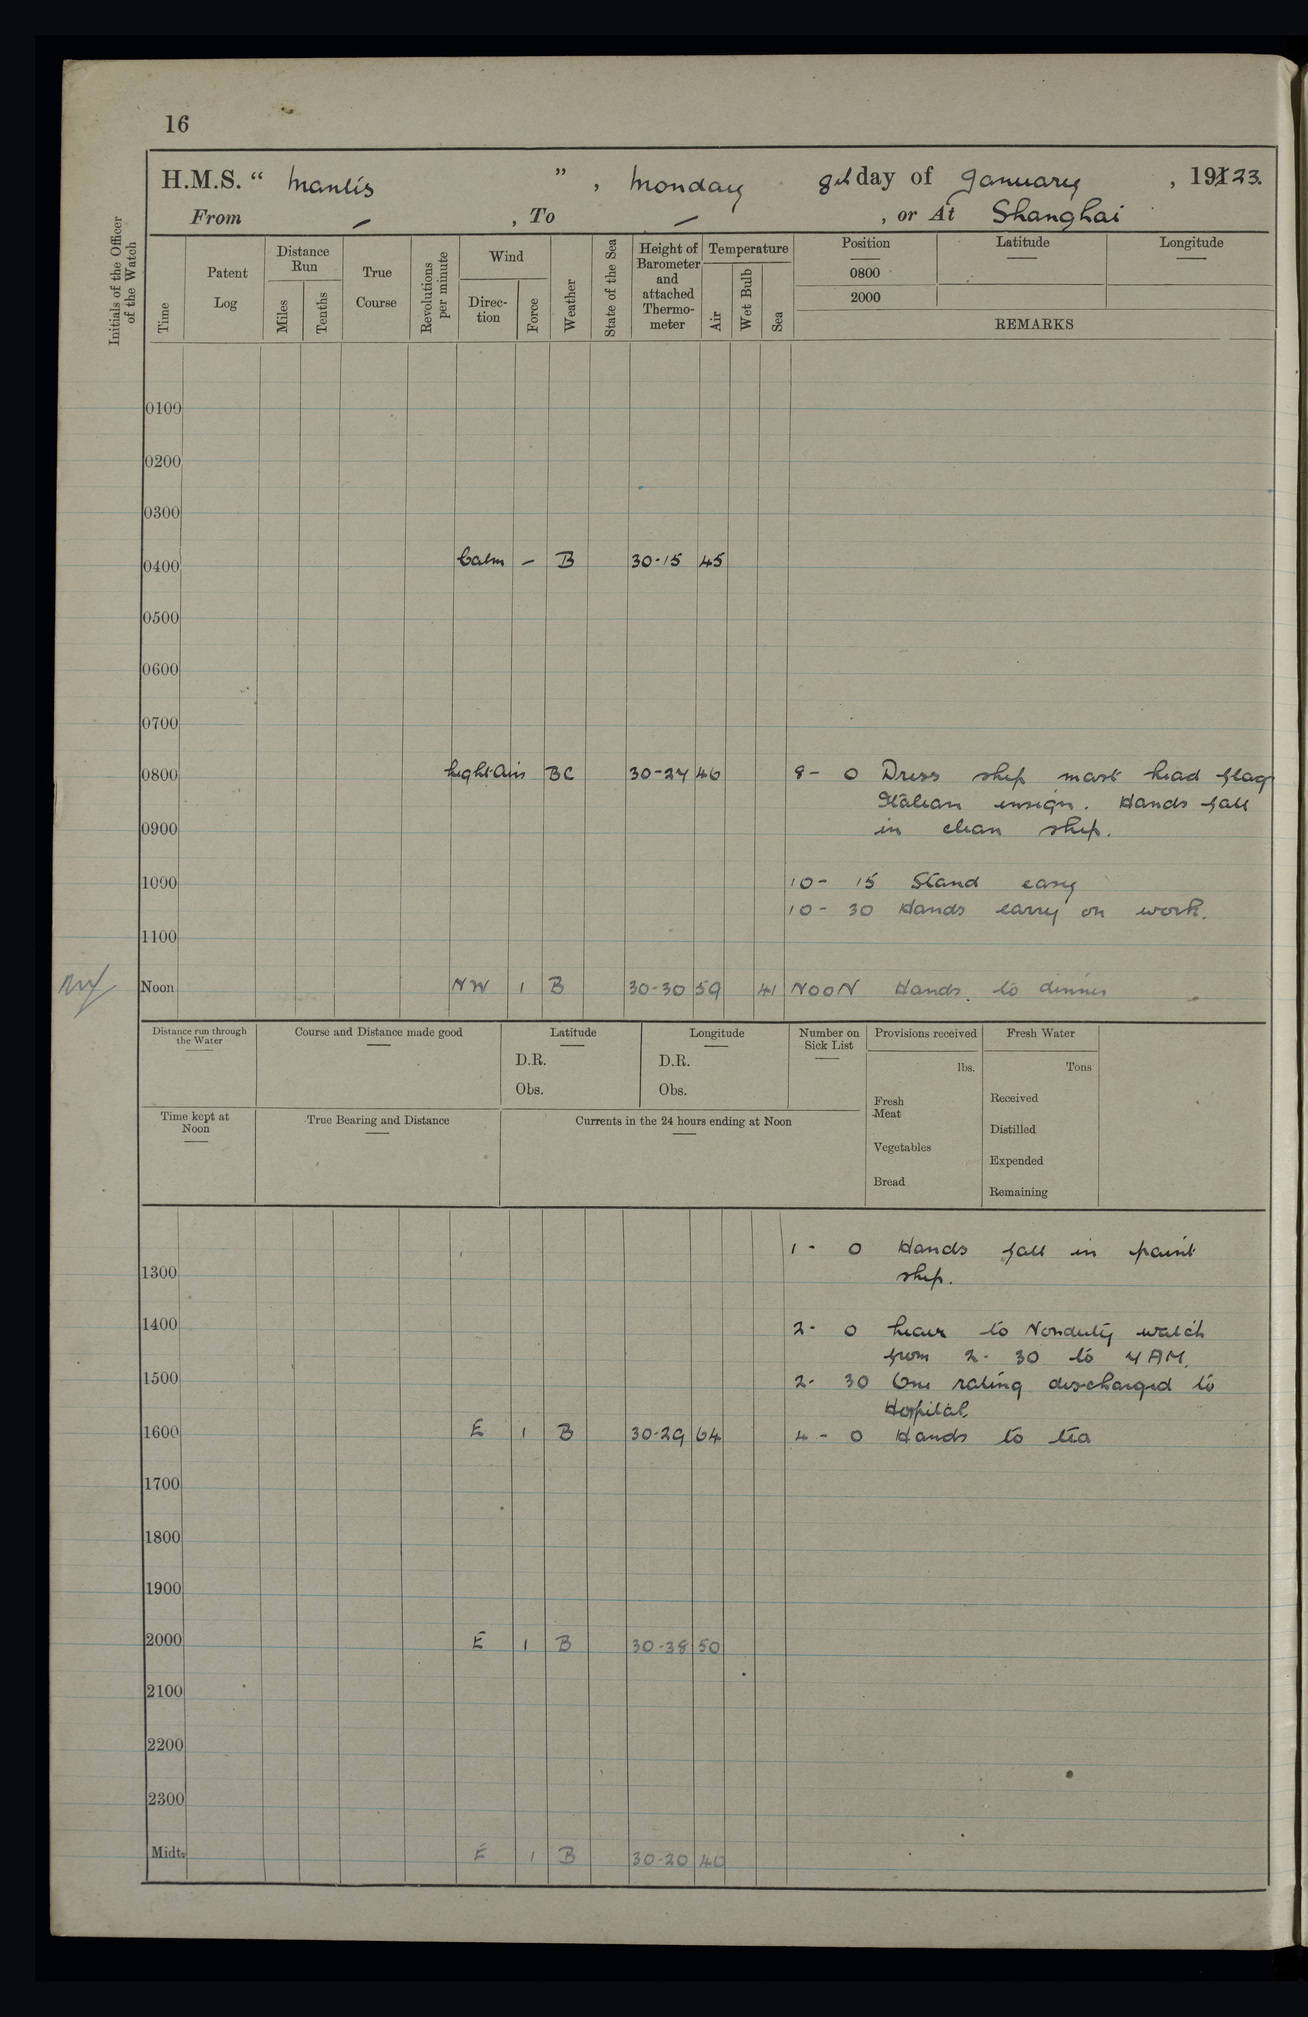 16
H.M.S. “ Mantis ” , Monday 8th day of January , 1923.
From – , To – , or At Shanghai
Initials of the Officer of the Watch
Time
Patent Log
Distance Run
Miles
Tenths
True Course
Revolutions per minute
Wind
Direc-tion
Force
Weather
State of the Sea
Height of Barometer and attached Thermo-meter
Temperature
Air
Wet Bulb
Sea
Position Latitude Longitude
0800
2000
REMARKS
0100
0200
0300
0400 Calm – B 30-15 45
0500
0600
0700
0800 Light Airs BC 30-27 46 8- 0 Dress ship mast head flag
Italian ensign. Hands fall
0900 in clean ship.
1000 10- 15 Stand easy
10- 30 Hands carry on work.
1100
Noon NW 1 B 30-30 59 41 NOON Hands to dinner
Distance run through the Water
Course and Distance made good
Latitude
D.R.
Obs.
Longitude
D.R.
Obs.
Number on Sick List
Provisions received
lbs.
Fresh Meat
Vegetables
Bread
Fresh Water
Tons
Received
Distilled
Expended
Remaining
Time kept at Noon
True Bearing and Distance
Currents in the 24 hours ending at Noon
1- 0 Hands fall in paint
1300 ship.
1400 2- 0 Leave to Nonduty watch
from 2-30 to 7AM.
1500 2- 30 One rating discharged to
Hospital.
1600 E 1 B 30-29 64 4- 0 Hands to tea
1700
1800
1900
2000 E 1 B 30-38 50
2100
2200
2300
Midt. E 1 B 30-20 40